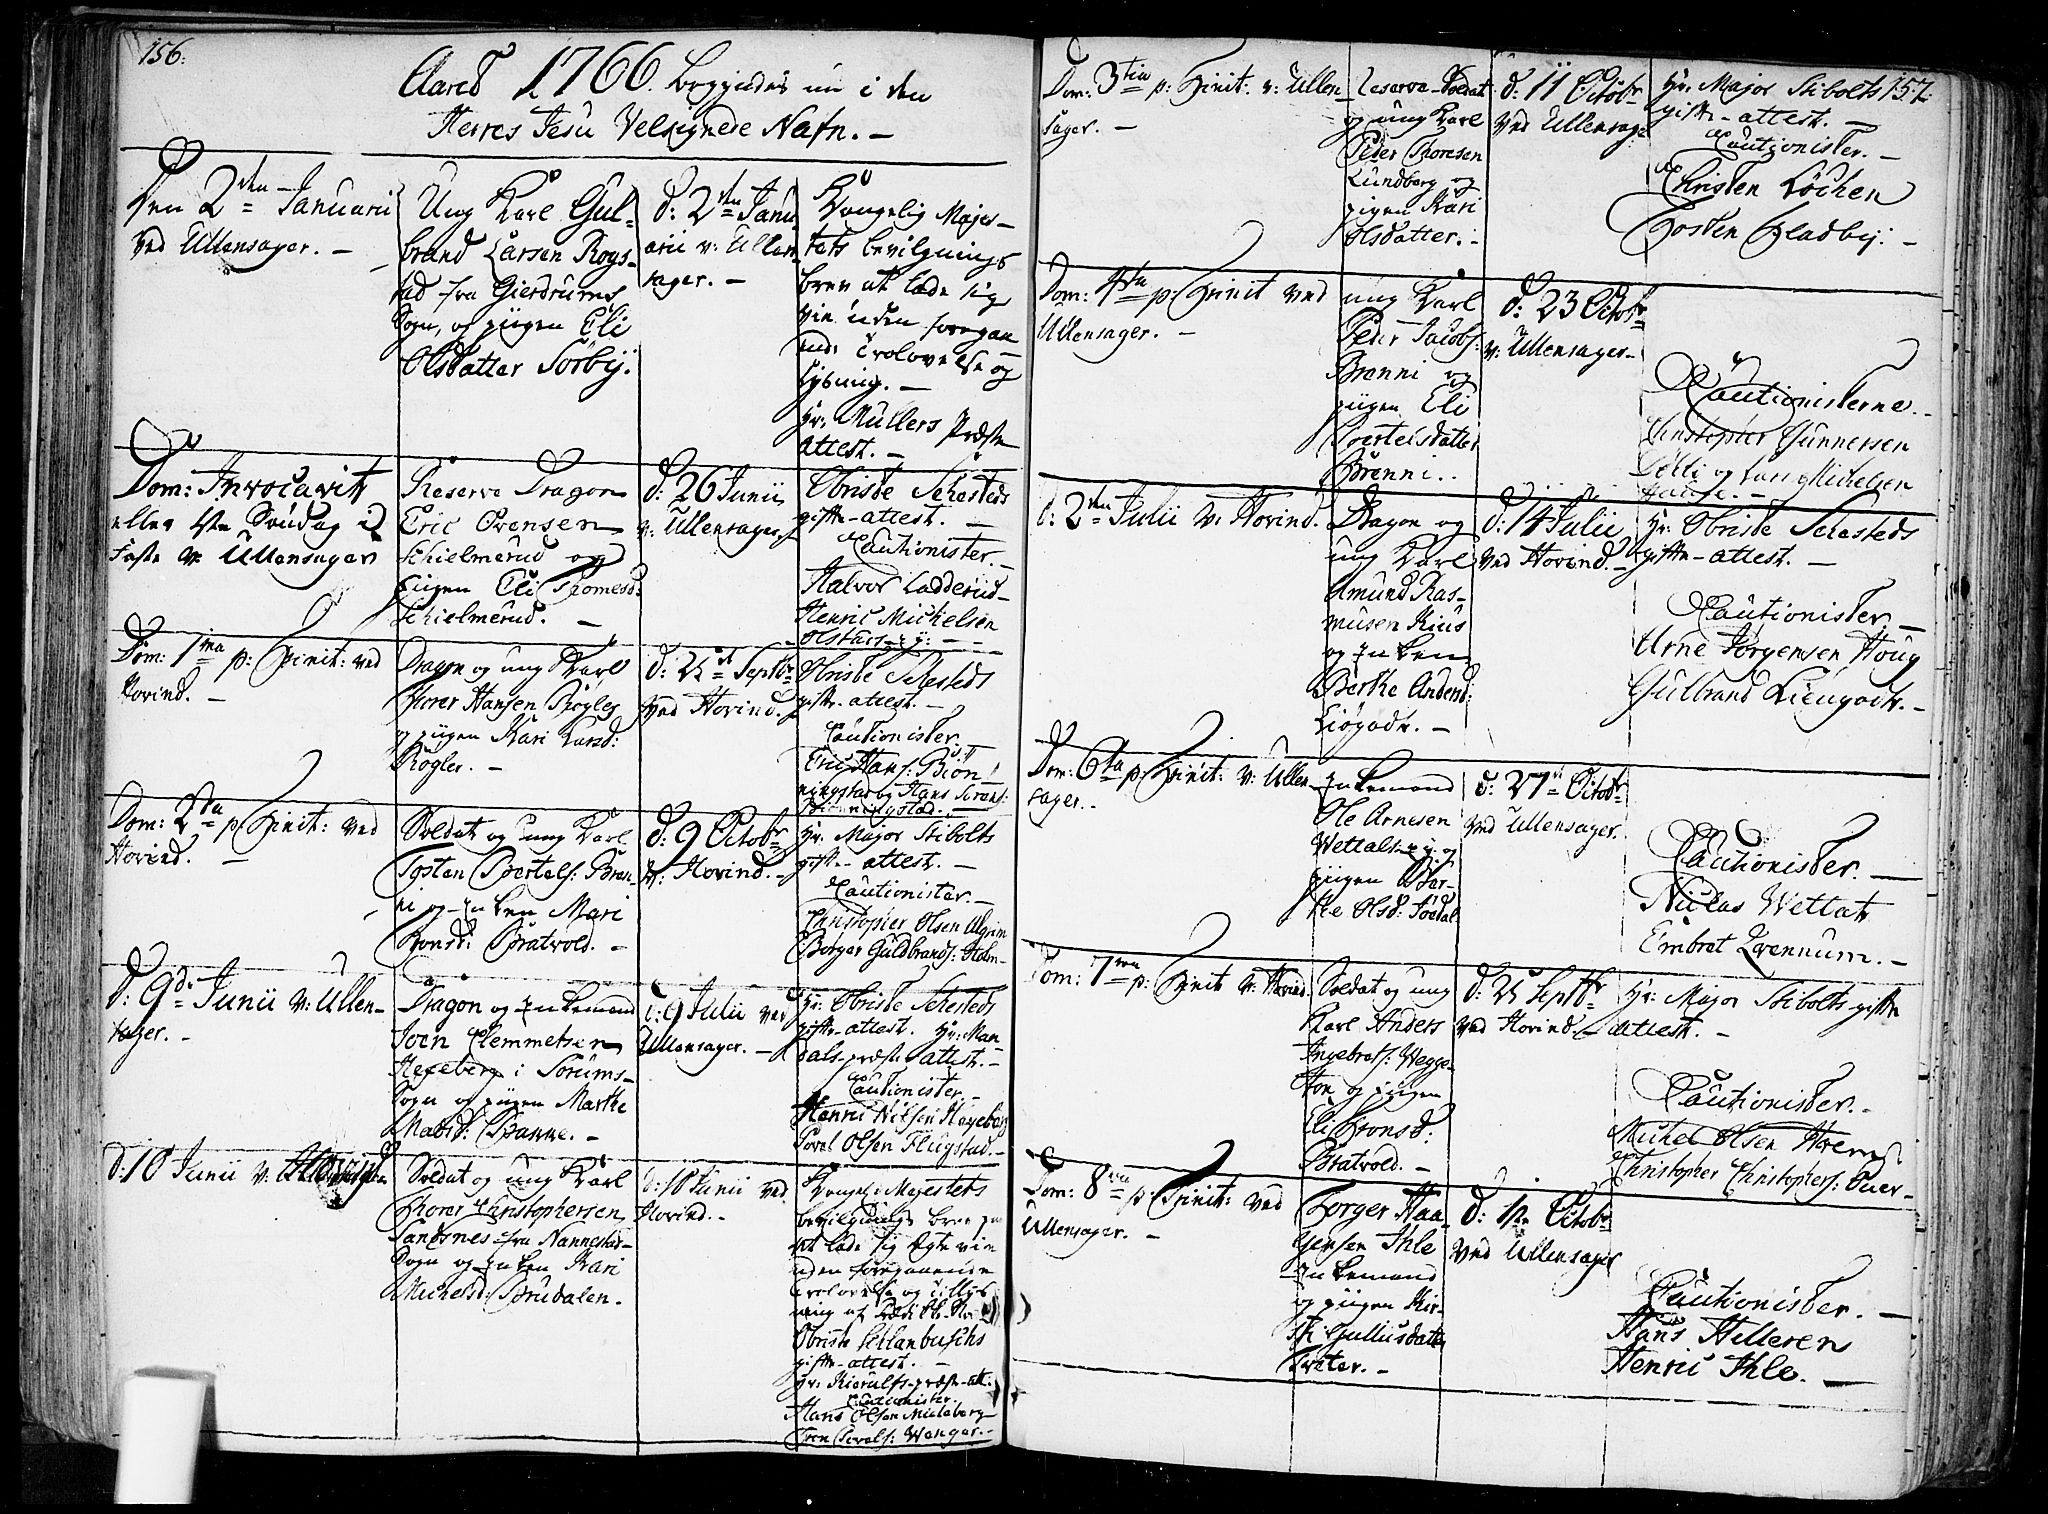 156.
Aaret 1766. begyndes nu i den
Herres Jesu Velsignede Nafn. –
Den 2den Januarii
ved Ullensager. –
Ung Karl Gul-
brand Larsen Rogs-
tad fra Gierdrums
Sogn, og piigen Eli
Olsdatter Sörbÿ.
d: 2den Janu
arii v: Ullen-
sager. –
Kongelig Majes-
tets bevilgnings
brev at lade sig
vie uden foregaa
ende trolovelse og
lysning. –
Hr: Müllers Præste
attest. –
Dom: Invocavit
eller 1ste Søndag i
Faste v: Ullensager
Reserve Dragon
Eric Evensen
Schielmerud og
piigen Eli Thomesd:
Schielmerud. –
d: 26 Junii
v: Ullensager.
Obriste Sehesteds
gifte-attest. –
Cautionister. –
Halvor Ladderud
Henric Michelsen
Olstad
Dom: 1ma p: Trinit: ved
Hovind. –
Dragon og ung Karl
Thorer Hansen Rögler
og piigen Kari Larsd:
Rögler. –
d: 25 Septbr
ved Hovind.
Obriste Sehesteds
gifte-attest. –
Cautionister
Eric Hans: Biön
ningstad og Hans Sörens:
Biönningstad. –
Dom: 2da p: Trinit: ved
Hovind. –
Soldat og ung Karl
Tosten Bertels: Bren-
ni og Enken Mari
Tronsd: Bratvold. –
d: 9 Octobr
v: Hovind. –
Hr: Major Stibolts
gifte-attest. –
Cautionister. –
Christopher Olsen Algrim
Borger Guldbrands: Holm –
d: 9de Junii v: Ullen-
sager. –
Dragon og Enkemand
Joen Clemmetsen
Hexeberg i Sörums-
Sogn og piigen Marthe
Madsd: Banne. –
d: 9 Julii ved
Ullensager. –
Hr: Obriste Sehesteds
gifte-attest. Hr: Man-
dals præste attest. –
Cautionister. –
Henric Nilsen Hexeberg
Povel Olsen Flugstad. –
d: 10 Junii v:
Soldat og ung Karl
Thorer Christophersen
Sandsnes fra Nannestad
Sogn og Enken Kari
Michelsd: Brudalen.
d: 10 Junii ved
Hovind. –
Kongel: Majestets
bevilgnings brev paa
at lade sig Ægte vie
uden foregaaende
trolovelse og tillys
ning af
Obriste
gifte-attest. –
Hr: Kierulfs præste-att.
Cautionister.
Hans Olsen Mileberg
Wenger. –
157.
Dom: 3tia p: Trinit: v: Ullen-
sager. –
Reserve-Soldat
og ung Karl
Peder Thoresen
Lundberg og
pigen Kari
Olsdatter. –
d: 11 Octobr
ved Ullensager
Hr: Major Stibolts
gifte-attest. –
Cautionister. –
Christen Löchen
Tosten Gladbÿ. –
Dom: 4ta p: Trinit ved
Ullensager. –
ung Karl
Peder Jacobs:
Brenni og
piigen Eli
Sivertsdatter
Brenni.
d: 23 Octobr
v: Ullensager.
Cautionisterne. –
Christopher Gunnersen
og Lars Michelsen
d: 2den Julii v: Hovind.
Dragon og
ung Karl
Amund Ras-
musen Kius
og Enken
Berthe Andersd:
Liögodt. –
d: 14 Julii
ved Hovind. –
Hr: Obriste Sehesteds
gifte-attest. –
Cautionister –
Arne Jörgensen Houg
Gulbrand Liengodt. –
Dom: 6ta p: Trinit: v: Ullen
sager. –
Enkemand
Ole Arnesen
Wettals og
piigen Ber-
the Olsd: Södal
d: 27 Octobr
ved Ullensager.
Cautionister. –
Niclas Wettal
Embret Qvennum. –
Dom: 7ma p: Trinit v: Hovind
Soldat og ung
Karl Anders
Ingebrets: Wegge-
ton og piigen
Eli Tronsd:
Bratvold. –
d: 25 Septbr
ved Hovind. –
Hr: Major Stibolts gifte
attest. –
Cautionister. –
Michel Olsen
Christopher Christophers:
Dom: 8va p: Trinit: ved
Ullensager. –
Torger Haa-
gensen Ihle
Enkemand
og piigen Kir-
sti Gulliksdatter
Træter. –
d: 12 Octobr
ved Ullensager
Cautionister. –
Hans Hilleren
Henric Ihle. –